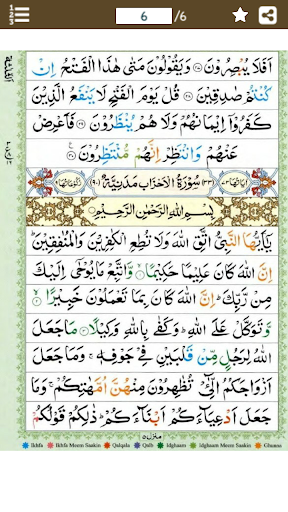 6 /6
اَفَلَا يُبْصِرُوْنَ ۝ وَيَقُوْلُوْنَ مَتٰى هٰذَا الْفَتْحُ اِنْ
كُنْتُمْ صٰدِقِيْنَ ۝ قُلْ يَوْمَ الْفَتْحِ لَا يَنْفَعُ الَّذِيْنَ
كَفَرُوْۤا اِيْمَانُهُمْ وَلَا هُمْ يُنْظَرُوْنَ ۝ فَاَعْرِضْ
عَنْهُمْ وَانْتَظِرْ اِنَّهُمْ مُّنْتَظِرُوْنَ ۝
سُوْرَةُ الْاَحْزَابِ مَدَنِيَّةٌ
بِسْمِ اللّٰهِ الرَّحْمٰنِ الرَّحِيْمِ
يٰۤاَيُّهَا النَّبِيُّ اتَّقِ اللّٰهَ وَلَا تُطِعِ الْكٰفِرِيْنَ وَالْمُنٰفِقِيْنَ ؕ
اِنَّ اللّٰهَ كَانَ عَلِيْمًا حَكِيْمًا ۝ وَّاتَّبِعْ مَا يُوْحٰۤى اِلَيْكَ
مِنْ رَّبِّكَ ؕ اِنَّ اللّٰهَ كَانَ بِمَا تَعْمَلُوْنَ خَبِيْرًا ۝
وَّتَوَكَّلْ عَلَى اللّٰهِ ؕ وَكَفٰى بِاللّٰهِ وَكِيْلًا ۝ مَا جَعَلَ
اللّٰهُ لِرَجُلٍ مِّنْ قَلْبَيْنِ فِيْ جَوْفِهٖ ۚ وَمَا جَعَلَ
اَزْوَاجَكُمُ الّٰٓـِٔيْ تُظٰهِرُوْنَ مِنْهُنَّ اُمَّهٰتِكُمْ ۚ وَمَا
جَعَلَ اَدْعِيَآءَكُمْ اَبْنَآءَكُمْ ؕ ذٰلِكُمْ قَوْلُكُمْ
منزل ۵
Ikhfa Ikhfa Meem Saakin Qalqala Qalb Idghaam Idghaam Meem Saakin Ghunna